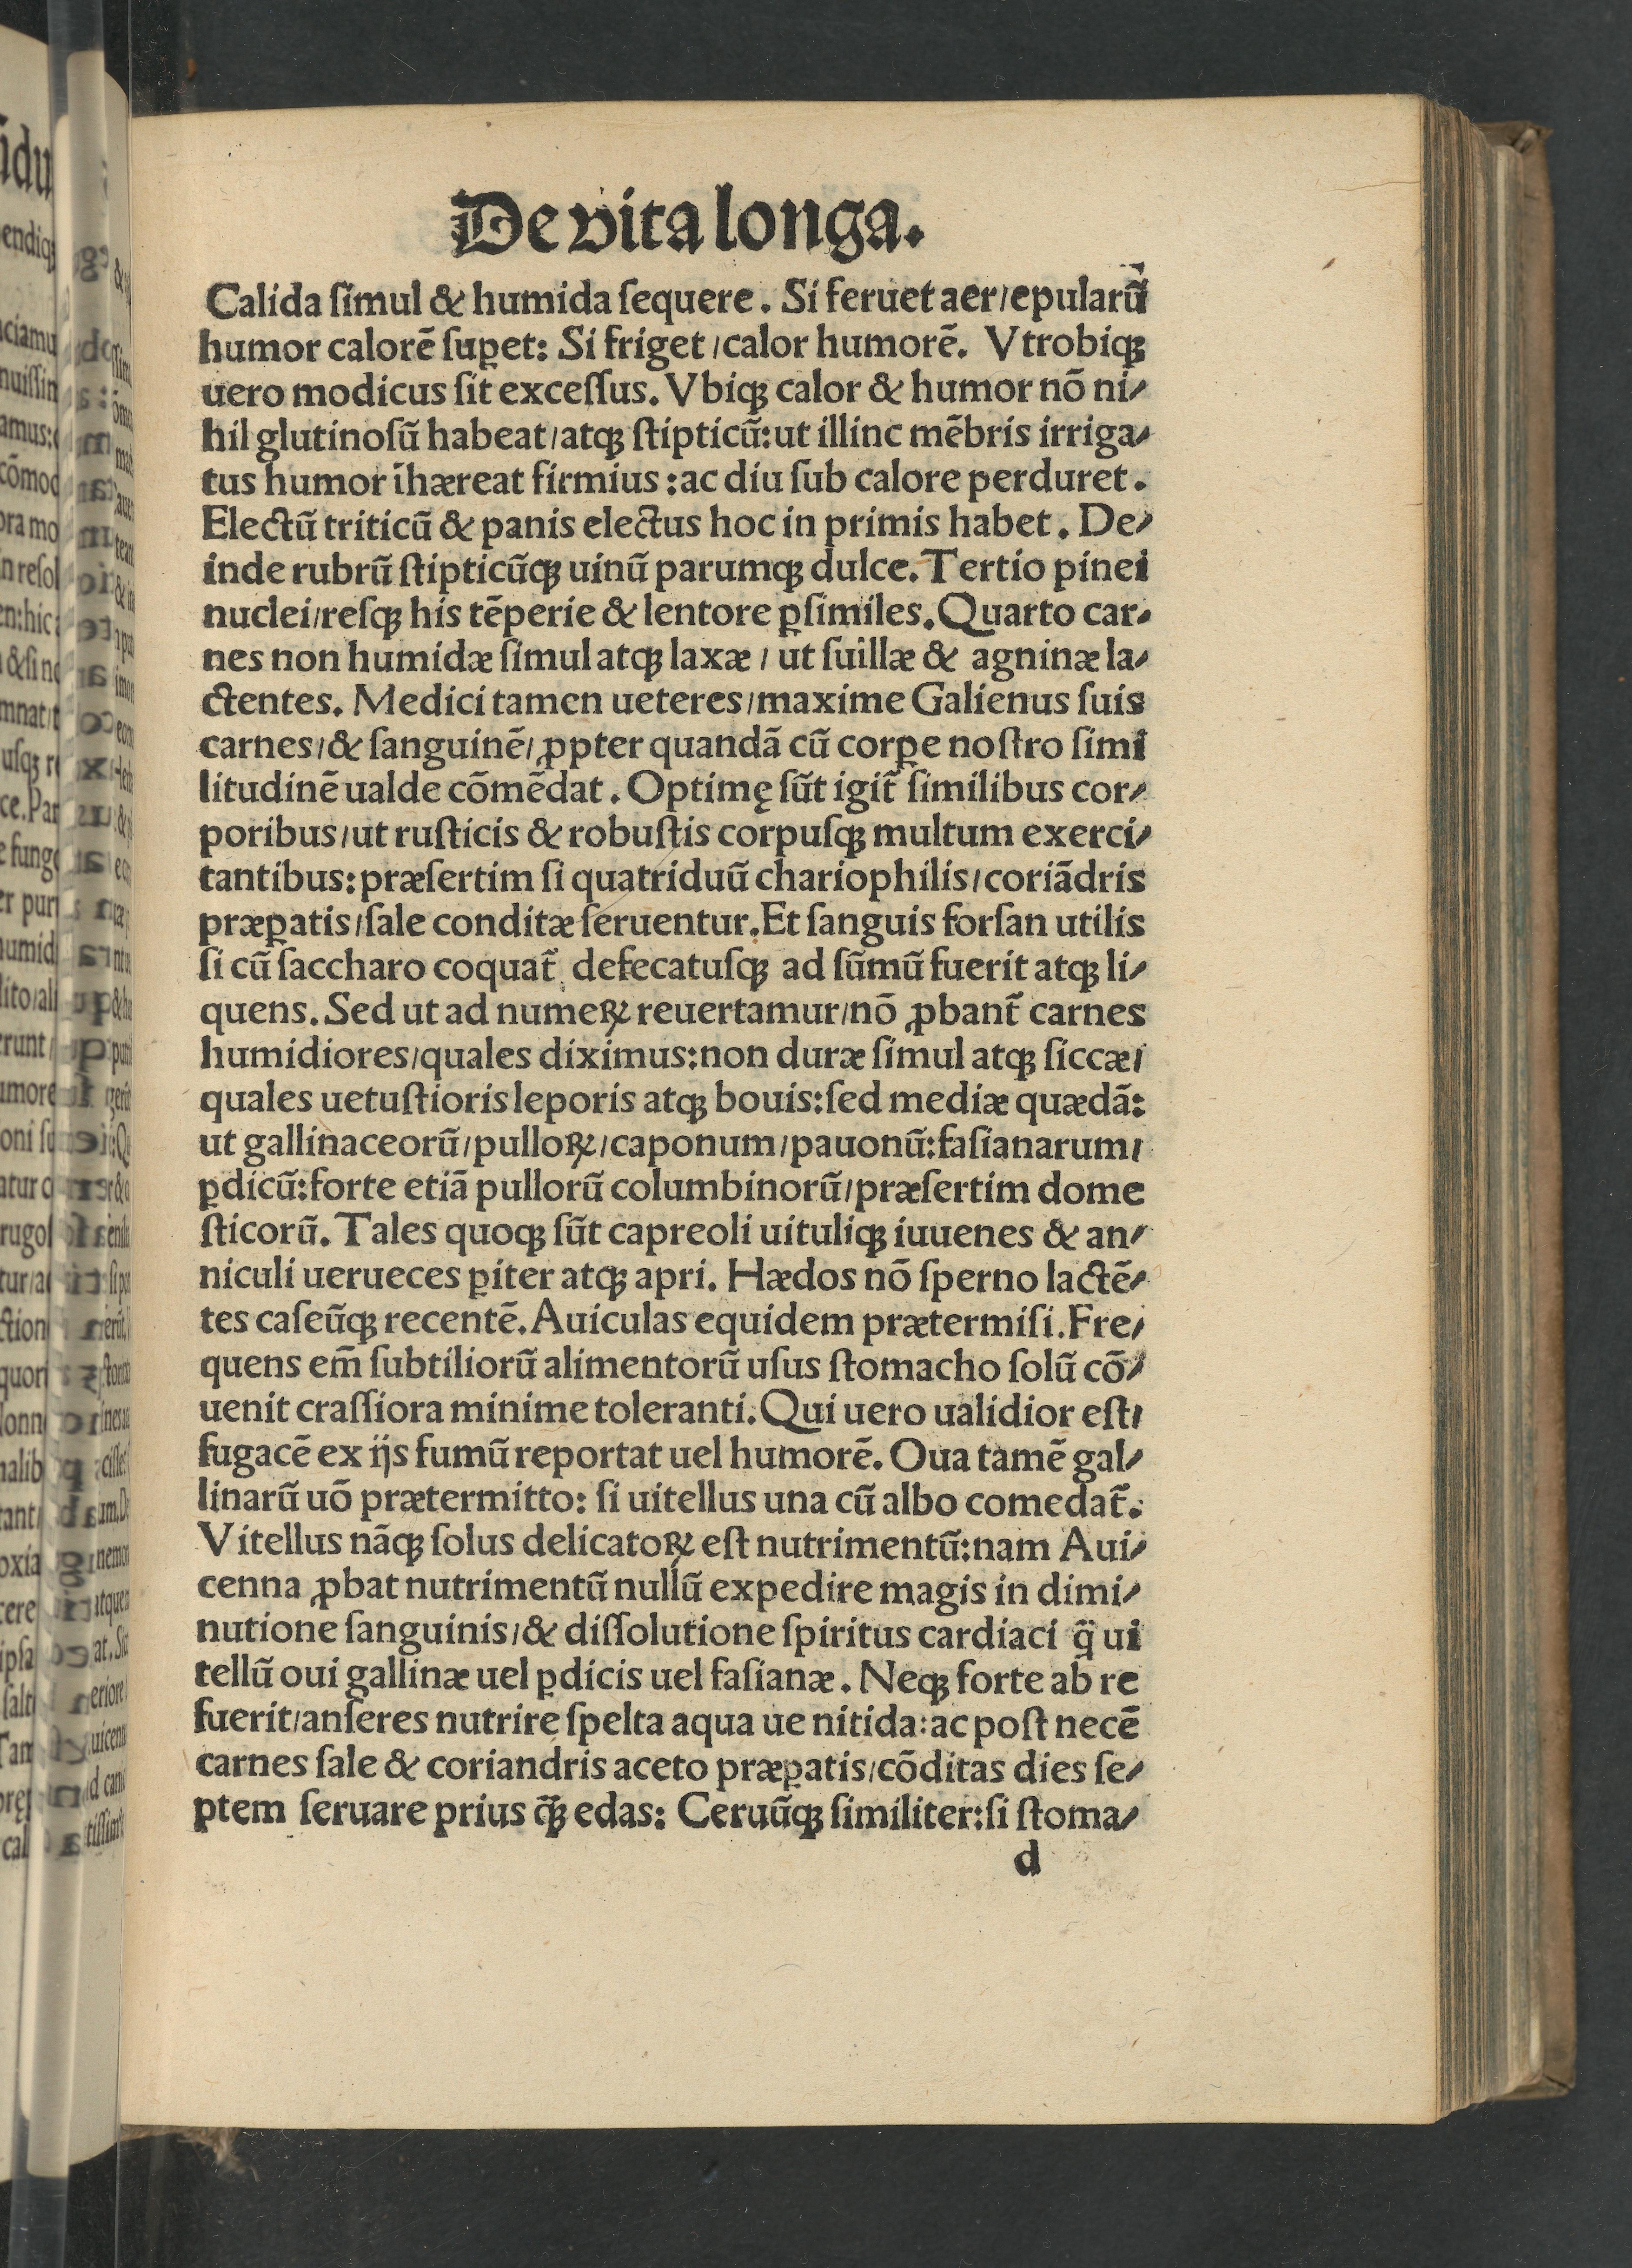 De vita longa.
Calida ſimul & humida ſequere. Si feruet aer/epularū
humor calorē ſuꝑet: Si friget/calor humorē. Vtrobiqꝫ
uero modicus ſit exceſſus. Vbiqꝫ calor & humor nō ni/
hil glutinoſū habeat/atqꝫ ſtipticū:ut illinc mēbris irriga/
tus humor īhæreat firmius:ac diu ſub calore perduret.
Electū triticū & panis electus hoc in primis habet. De/
inde rubrū ſtipticūqꝫ uinū parumqꝫ dulce. Tertio pinei
nuclei/reſqꝫ his tēperie & lentore ꝑſimiles. Quarto car/
nes non humidæ ſimul atqꝫ laxæ/ ut ſuillæ & agninæ la/
ctentes. Medici tamen ueteres/maxime Galienus ſuis
carnes/& ſanguinē/ꝓpter quandā cū corꝑe noſtro ſimi
litudinē ualde cōmēdat. Optimę ſūt igit̃ ſimilibus cor/
poribus/ut ruſticis & robuſtis corpuſqꝫ multum exerci/
tantibus:præſertim ſi quatriduū chariophilis/coriādris
præꝑatis/ſale conditæ ſeruentur. Et ſanguis forſan utilis
ſi cū ſaccharo coquat̃ defecatuſqꝫ ad ſūmū fuerit atqꝫ li/
quens. Sed ut ad numeꝝ reuertamur/nō ꝓbant̃ carnes
humidiores/quales diximus:non duræ ſimul atqꝫ ſiccæ/
quales uetuſtioris leporis atqꝫ bouis:ſed mediæ quædā:
ut gallinaceorū/pulloꝝ/caponum/pauonū:faſianarum/
ꝑdicū:forte etiā pullorū columbinorū/præſertim dome
ſticorū. Tales quoqꝫ ſūt capreoli uituliqꝫ iuuenes & an/
niculi uerueces ꝑiter atqꝫ apri. Hædos nō ſperno lactē/
tes caſeūqꝫ recentē. Auiculas equidem prætermiſi. Fre/
quens em̄ ſubtiliorū alimentorū uſus ſtomacho ſolū cō/
uenit craſſiora minime toleranti. Qui uero ualidior eſt/
fugacē ex ijs fumū reportat uel humorē. Oua tamē gal/
linarū uō prætermitto: ſi uitellus una cū albo comedat̃.
Vitellus nāqꝫ ſolus delicatoꝝ eſt nutrimentū:nam Aui/
cenna ꝓbat nutrimentū nullū expedire magis in dimi/
nutione ſanguinis/& diſſolutione ſpiritus cardiaci q̃ ui
tellū oui gallinæ uel ꝑdicis uel faſianæ. Neqꝫ forte ab re
fuerit/anſeres nutrire ſpelta aqua ue nitida:ac poſt necē
carnes ſale & coriandris aceto præꝑatis/cōditas dies ſe/
ptem ſeruare prius q̄ꝫ edas: Ceruūqꝫ ſimiliter:ſi ſtoma/
d